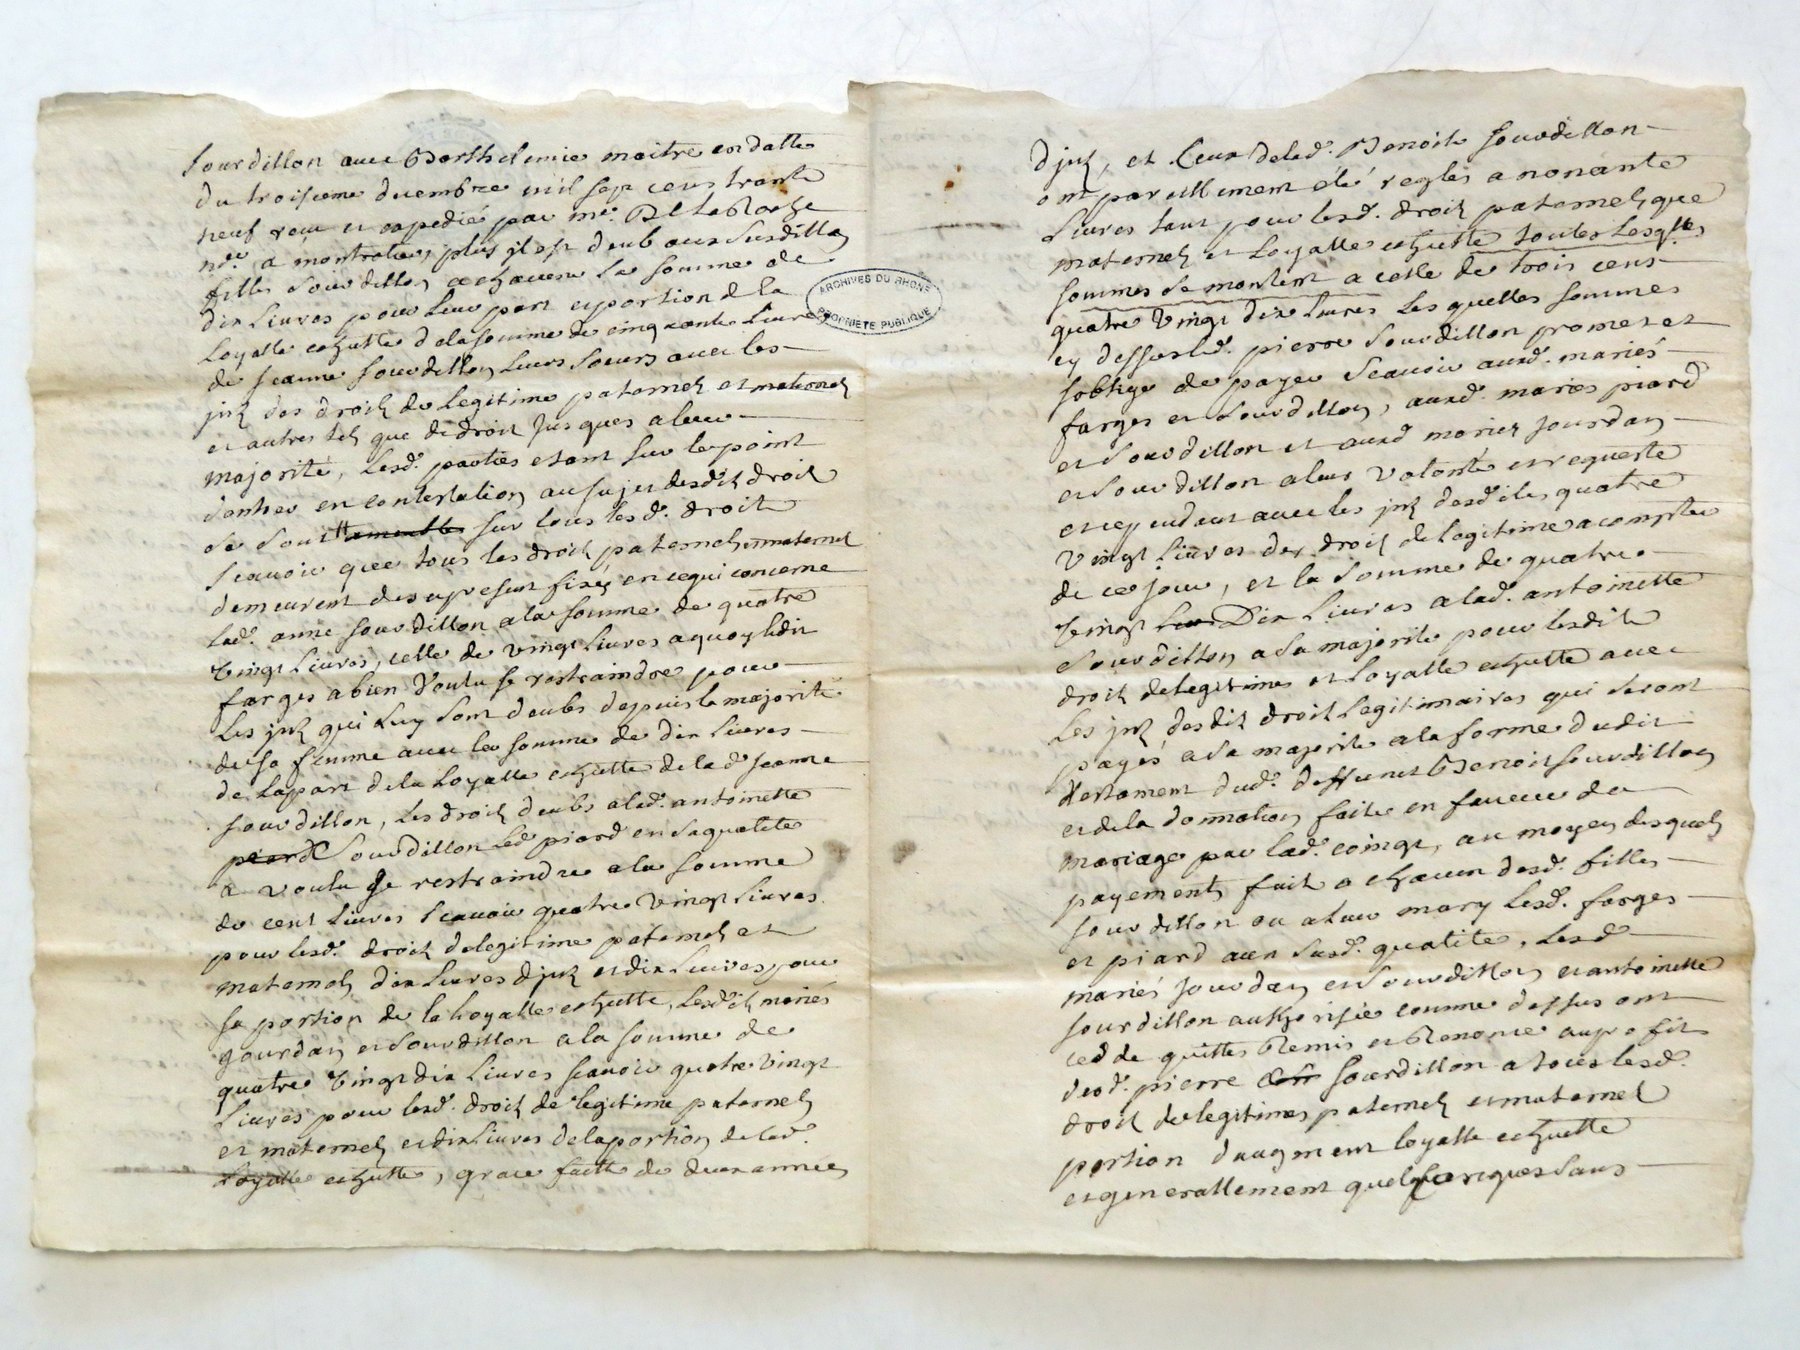 Sourdillon avec Barthelemie maitre en datte
du troisieme decembre mil sept cens trante
neuf reçu et expedieé par me. Delaroche
nre. a montrotier, plus il est deub aux susdittes
filles Sourdillon a chacune la somme de
dix Livres pour leur part et portion de la
Loyalle echutte de la somme de cinquante Livres
de jeanne sourdillon leurs soeurs avec les
jnts des droits de legitime paternels et maternels
et autres tels que de droit jusques a leur
majorité, lesd. parties etant sur le point
dentrer en contestation au sujet desdits droits
se sont sur tous lesd. droits
scavoir que tous les droits paternels et maternels
demeurent des a present fixés en ce qui concerne
lad. anne sourdillon a la somme de quatre
vingt livres, celle de vingt livres a quoy ledit
farges a bien voulu se restraindre pour
les jnts qui luy sont deubs depuis la majorité
de sa femme avec la somme de dix livres
de la part de la loyalle echutte de la de jeanne
sourdillon, les droits deubs a lad. antoinette
piard Sourdillon led piard en sa qualité
a voulu se restraindre a la somme
de cent livres scavoir quatre vingt livres
pour lesd. droits de legitime paternels et
maternels dix livres djnts et dix livres pour
sa portion de la loyalle echutte, lesdits mariés
gourdan et sourdillon a la somme de
quatre vingt dix livres scavoir quatre vingt
livres pour lesd. droits de legitime paternels
et maternels et dix livres de la portion de lad.
loyalle echutte, grace faitte de deux années
djnts, et ceux delad. Benoite sourdillon
ont pareillement été reglés a nonante
livres tant pour lesd. droits paternels que
maternels et loyalle echutte toutes lesqlles
sommes se montent a celle de trois cens
quatre vingt dix livres les quelles sommes
cy dessus led. pierre sourdillon promet et
soblige de payer scavoir auxd. mariés
farges et sourdillon, auxd. mariés piard
et sourdillon et auxd mariez jourdan
et sourdillon a leur volonté et requeste
et cependant avec les jnts desdites quatre
vingt livres des droits de legitime a compter
de ce jour, et la somme de quatre
vingt Dix livres a lad. antoinette
sourdillon a sa majorité pour lesdits
droits de legitime et loyalle echutte avec
les jnts desdits droits legitimaires qui seront
payés a sa majorité a la forme dudit
testament dud. deffunct Benoit sourdillon
et de la donnation faite en faveur de
mariage par lad. coingt, au moyen desquels
payements faits a chacun desd. filles
sourdillon ou a leur mary lesd. farges
et piard aux susd. qualité, lesd
mariés jourdan et sourdillon et antoinette
sourdillon authorisée comme dessus ont
cedde quittés Remis et Renoncé au profit
dud. pierre sourdillon a tous lesd.
droits de legitimes paternels et maternels
portion daugment loyalle echutte
et generallement quelquonques sans